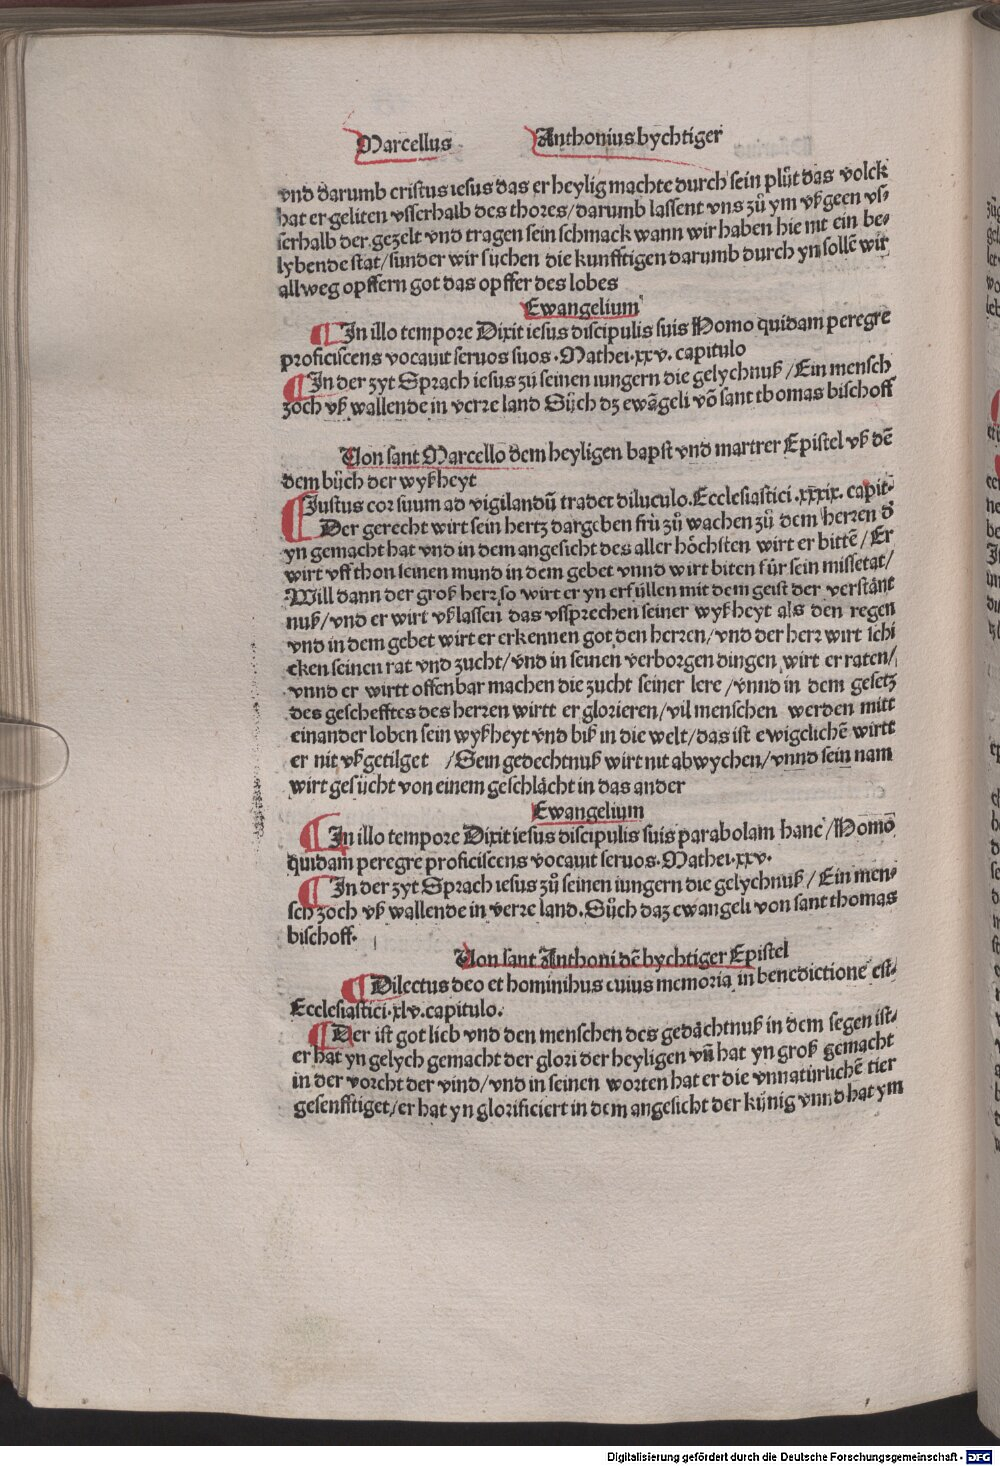 Marcellus Anthonius bychtiger
vnd darumb cristus iesus das er heylig machte durch sein plůt das volck
hat er geliten vsserhalb des thores/darumb lassent vns zů ym vßgeen vs-
serhalb der gezelt vnd tragen sein schmack wann wir haben hie nit ein be-
lybende stat/sunder wir sůchen die kunfftigen darumb durch yn sollē wir
allweg opffern got das opffer des lobes
Ewangelium
¶In illo tempore Dixit iesus discipulis suis Homo quidam peregre
proficiscens vocauit seruos suos.Mathei.xxv.capitulo
¶In der zyt Sprach iesus zů seinen iungern die gelychnuß/Ein mensch
zoch vß wallende in verre land Sůch dz ewāgeli vō sant thomas bischoff
Von sant Marcello dem heyligen bapst vnd martrer Epistel vß dē
dem bůch der wyßheyt
¶Justus cor suum ad vigilandū tradet diluculo.Ecclesiastici.xxxix.capit-
Der gerecht wirt sein hertz dargeben frů zů wachen zů dem herren d̄
yn gemacht hat vnd in dem angesicht des aller höchsten wirt er bittē/Er
wirt vff thon seinen mund in dem gebet vnnd wirt biten für sein missetat/
Will dann der groß herr so wirt er yn erfüllen mit dem geist der verstänt
nuß/vnd er wirt vßlassen das vssprechen seiner wyßheyt als den regen
vnd in dem gebet wirt er erkennen got den herren/vnd der herr wirt schi
cken seinen rat vnd zucht/vnd in seinen verborgen dingen wirt er raten/
vnnd er wirtt offenbar machen die zucht seiner lere/vnnd in dem gesetz
des geschefftes des herren wirtt er glorieren/vil menschen werden mitt
einander loben sein wyßheyt vnd biß in die welt/das ist ewigclichē wirtt
er nit vßgetilget /Sein gedechtnuß wirt nit abwychen/vnnd sein nam
wirt gesůcht von einem geschlächt in das ander
Ewangelium
¶In illo tempore Dixit iesus discipulis suis parabolam hanc/Homo
quidam peregre proficiscens vocauit seruos.Mathei.xxv.
¶In der zyt Sprach iesus zů seinen iungern die gelychnuß/Ein men-
sch zoch vß wallende in verre land.Sůch daz ewangeli von sant thomas
bischoff.
Von sant Anthoni dē bychtiger Epistel
¶Dilectus deo et hominibus cuius memoria in benedictione est-
Ecclesiastici.xlv.capitulo.
¶Der ist got lieb vnd den menschen des gedächtnuß in dem segen ist-
er hat yn gelych gemacht der glori der heyligen vn̄ hat yn groß gemacht
in der vorcht der vind/vnd in seinen worten hat er die vnnatürlichē tier
gesenfftiget/er hat yn glorificiert in dem angesicht der künig vnnd hat ym
Digitalisierung gefördert durch die Deutsche Forschungsgemeinschaft - DFG